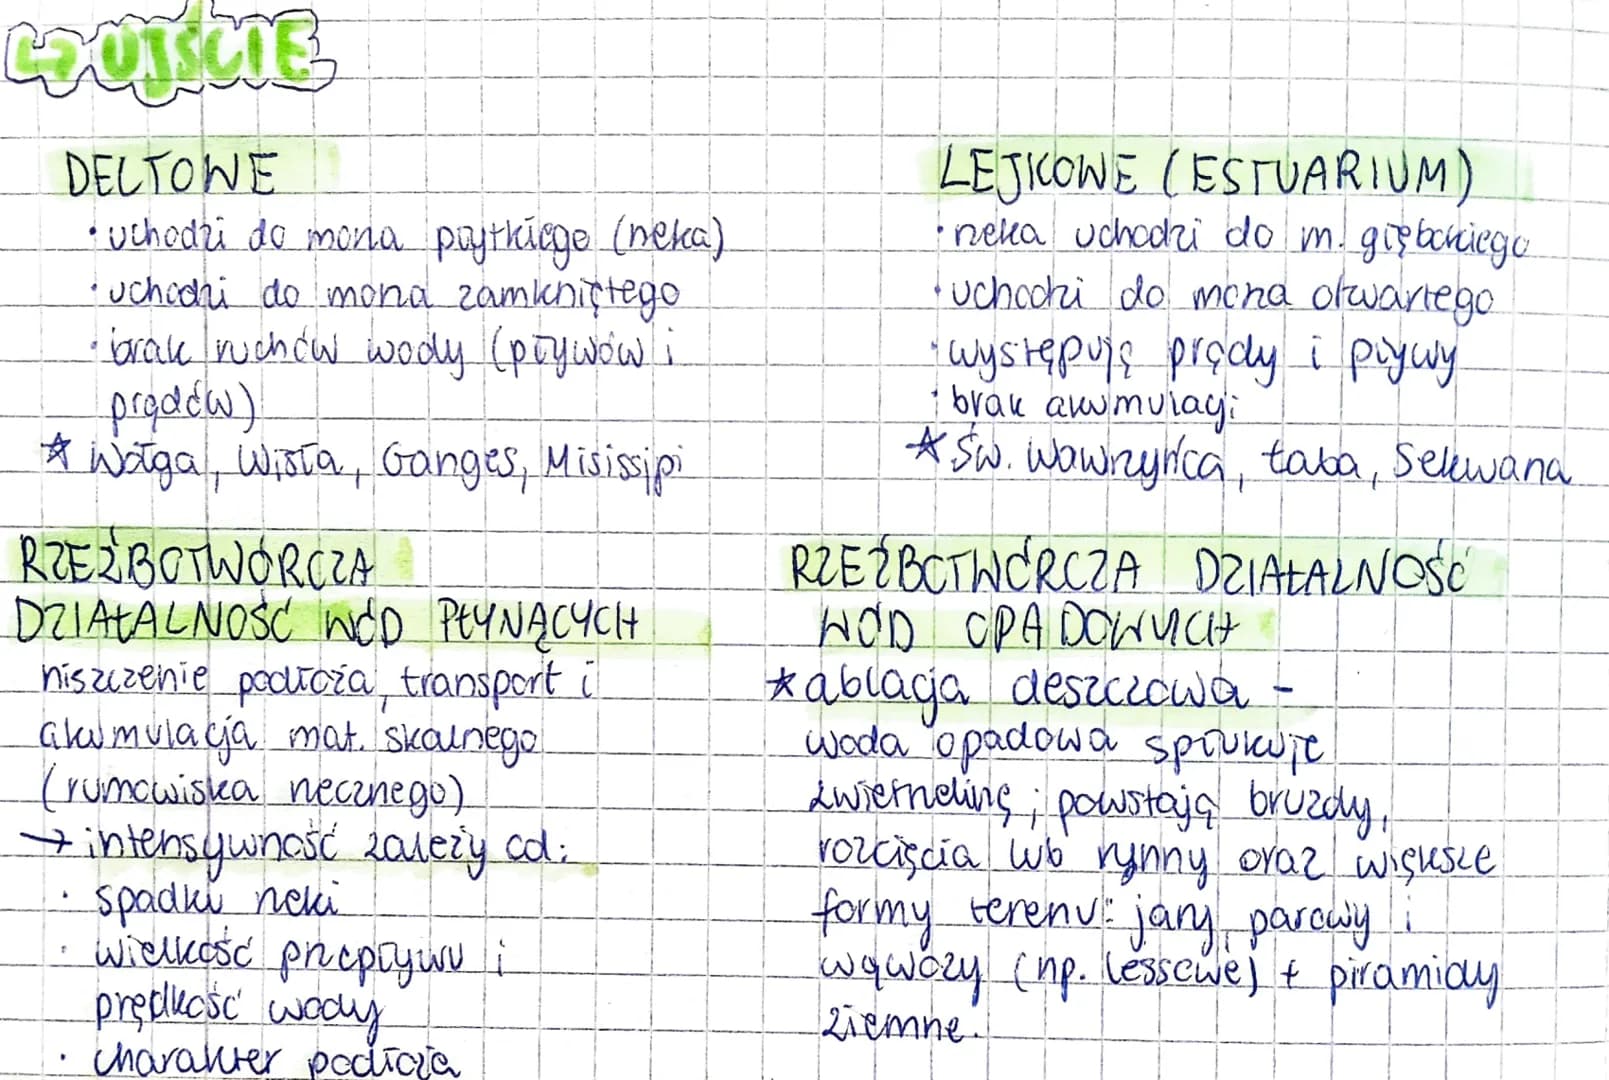 ↳ UJŚCIE
DELTOWE
· uchodzi do morza płytkiego (rzeka)
· uchodzi do morza zamkniętego
· brak ruchów wody (pływów i
prądów)
☆ Wołga, Wisła, Ganges, Misissipi
LEJKOWE (ESTUARIUM)
· rzeka uchodzi do m. głębokiego
· uchodzi do morza otwartego
· występują prądy i pływy
· brak akumulacji
☆ Św. Wawrzyńca, Łaba, Sekwana
RZEŹBOTWÓRCZA
DZIAŁALNOŚĆ WÓD PŁYNĄCYCH
niszczenie podłoża, transport i
akumulacja mat. skalnego
(rumowiska rzecznego)
→ intensywność zależy od:
· spadku rzeki
· wielkość przepływu i
prędkość wody
· charakter podłoża
RZEŹBOTWÓRCZA DZIAŁALNOŚĆ
WÓD OPADOWYCH
☆ ablacja deszczowa -
woda opadowa spłukuje
zwietrzelinę; powstają bruzdy,
rozcięcia lub rynny oraz większe
formy terenu: jary, parowy i
wąwozy (np. lessowe) + piramidy
ziemne.